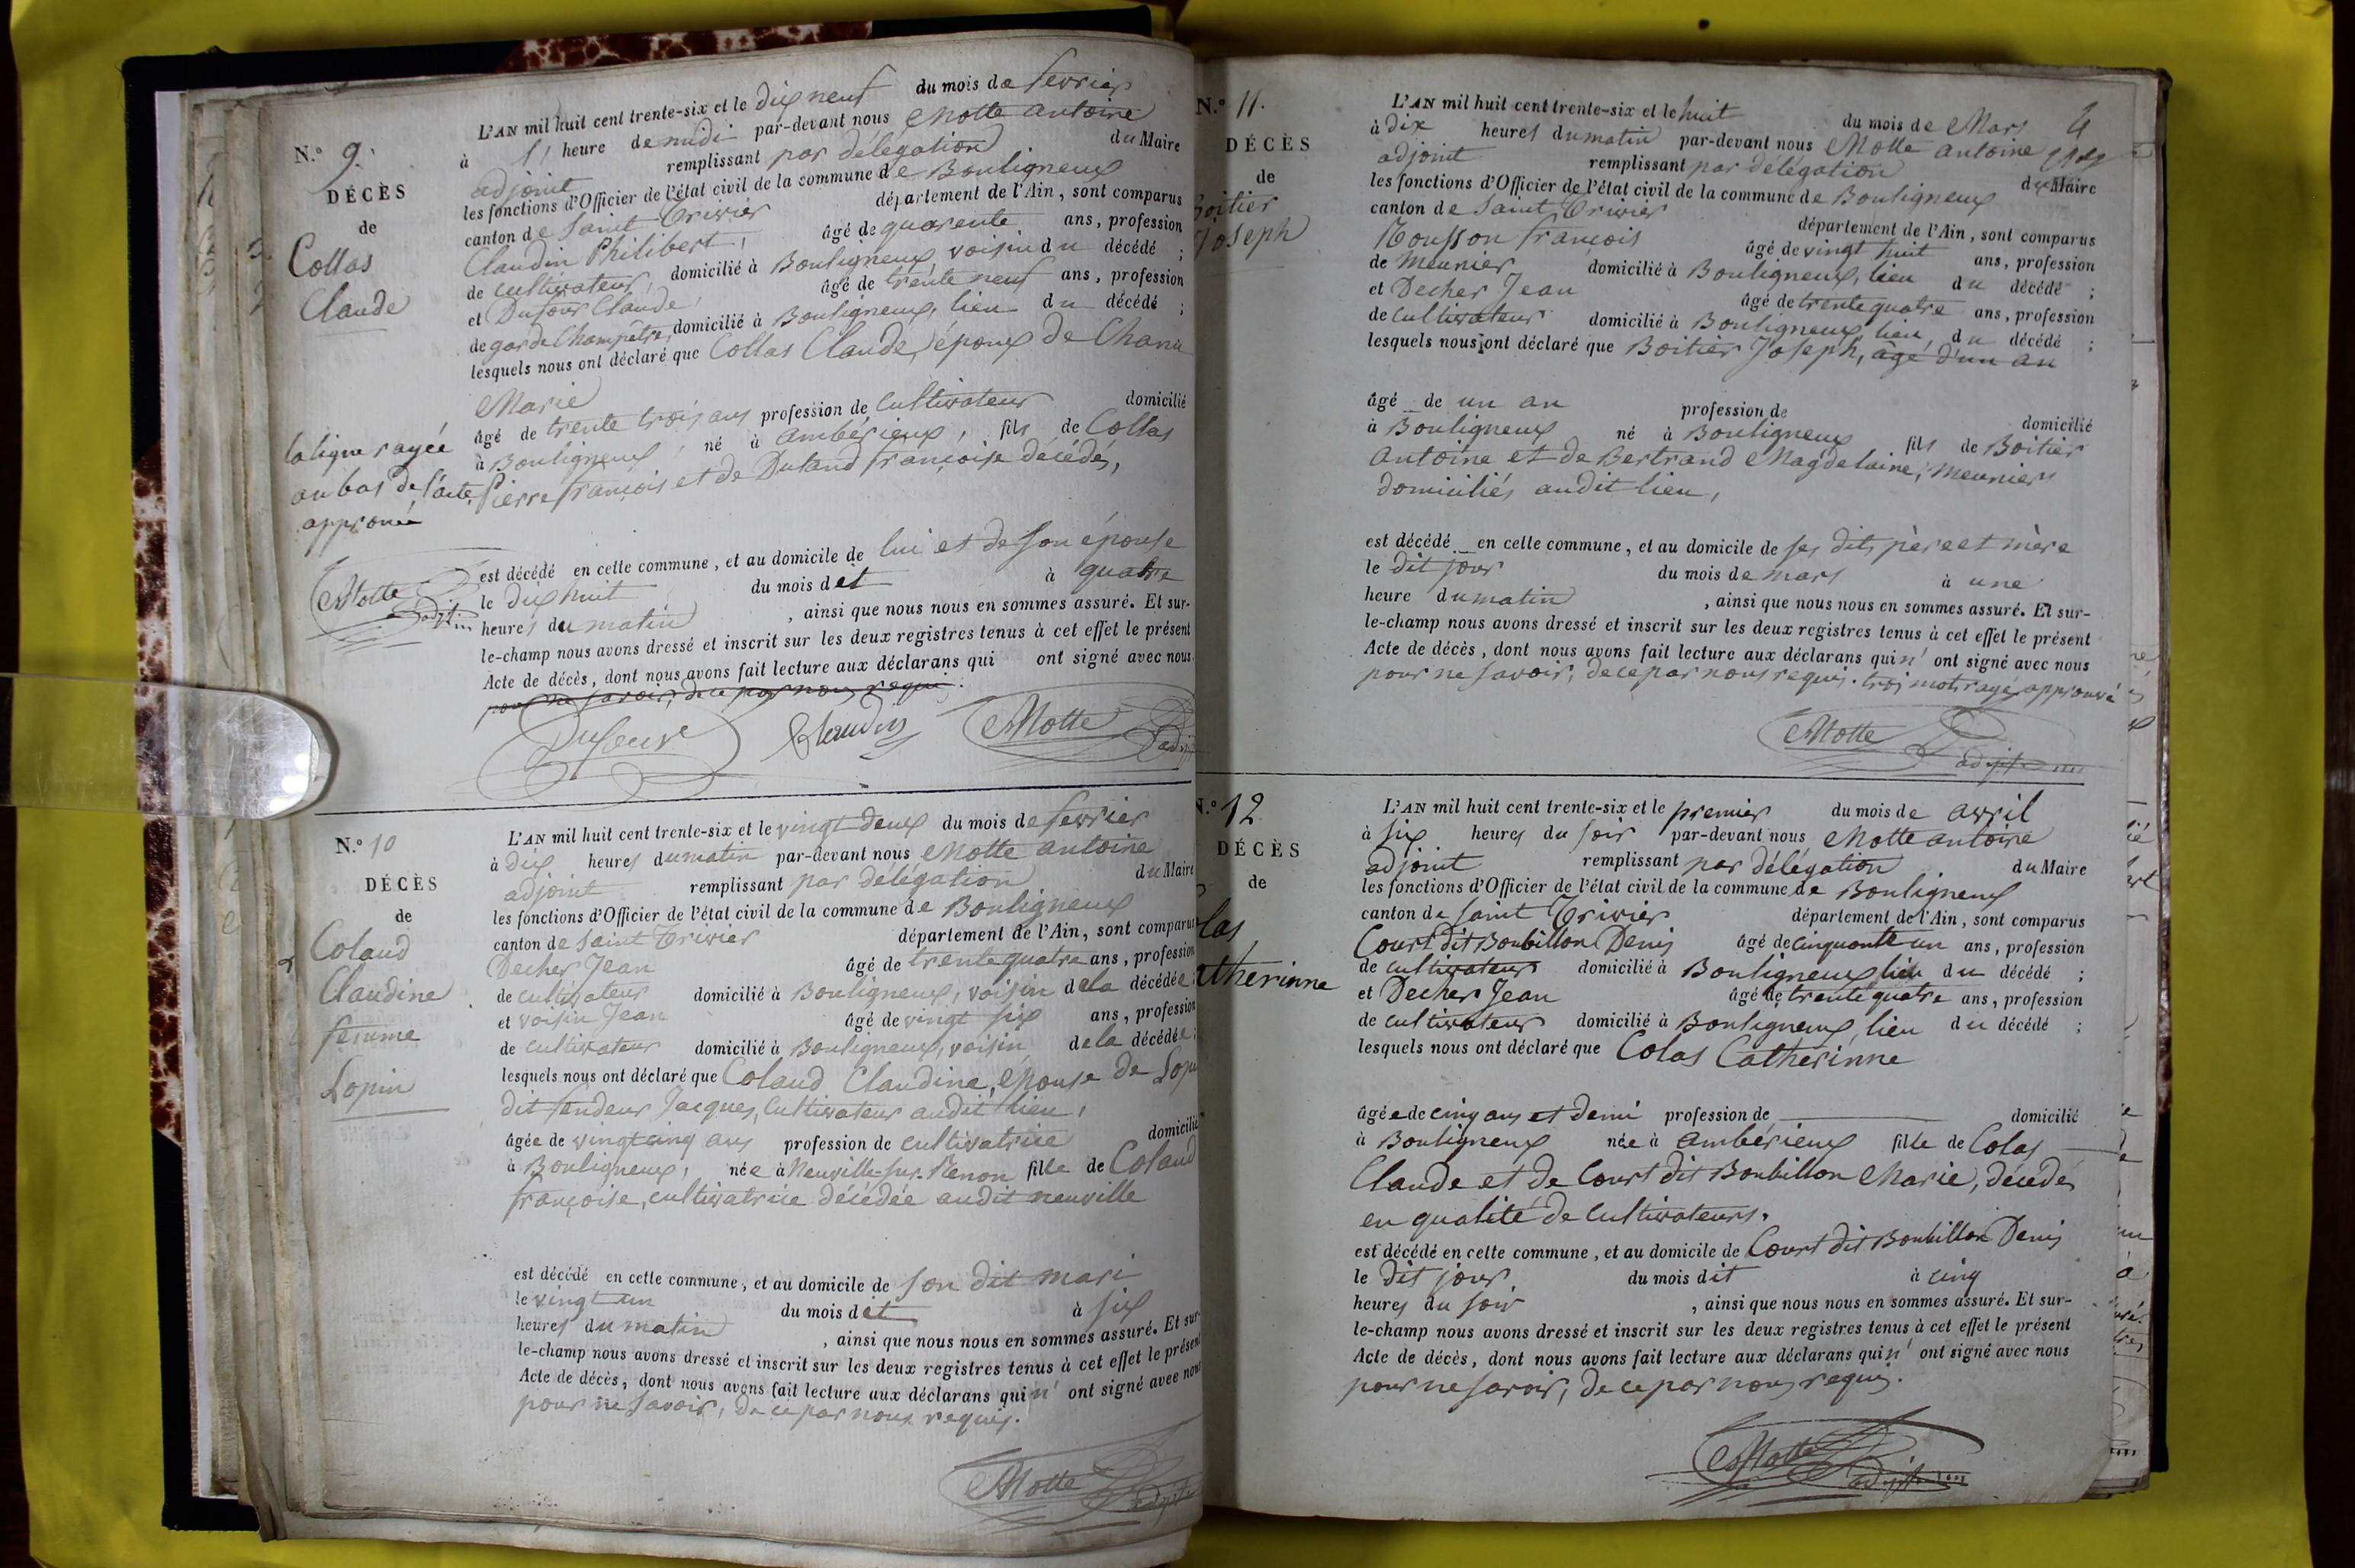 N.° 9.
DÉCÈS
de
Collas
Claude
L'AN mil huit cent trente-six et le dix neuf du mois de fevrier
à heure de midi par-devant nous Motte antoine
adjoint remplissant par délégation du Maire
les fonctions d'Officier de l'état civil de la commune de Bouligneux
canton de Saint Trivier département de l'Ain, sont comparus
Claudin Philibert, âgé de quarente ans, profession
de cultivateur, domicilié à Bouligneux voisin du décédé ;
et Dufour Claude, âgé de trente neuf ans, profession
de garde Champêtre, domicilié à Bouligneux, lieu du décédé ;
lesquels nous ont déclaré que Collas Claude, époux de Chana
Marie
âgé de trente trois ans profession de cultivateur domicilié
à Bouligneux, né à ambérieux, fils de Collas
Pierre françois et de Dutand françoise décédés,
la ligne rayée
au bas de l'acte
approuvée
Motte
adjoin
est décédé en cette commune, et au domicile de lui et de son épouse
le dix huit du mois dit à quatre
heures du matin , ainsi que nous nous en sommes assuré. Et sur-
le-champ nous avons dressé et inscrit sur les deux registres tenus à cet effet le présent
Acte de décès, dont nous avons fait lecture aux déclarans qui ont signé avec nous
pour ne savoir, de ce par nous requi.
Dufour Claudin Motte adj
N.° 10
DÉCÈS
de
Coland
Claudine
femme
Lopin
L'AN mil huit cent trente-six et le vingt deux du mois de fevrier
à dix heures du matin par-devant nous Motte antoine
adjoint remplissant par délégation du Maire
les fonctions d'Officier de l'état civil de la commune de Bouligneux
canton de Saint Trivier département de l'Ain, sont comparus
Decher Jean âgé de trente quatre ans, profession
de cultivateur domicilié à Bouligneux, voisin de la décédée
et voisin Jean âgé de vingt six ans, profession
de cultivateur domicilié à Bouligneux, voisin de la décédée ;
lesquels nous ont déclaré que Coland Claudine, épouse de Lopin
dit fendeur Jacques, Cultivateur au dit lieu,
âgée de vingt cinq ans profession de cultivatrice domicilié
à Bouligneux, née à Neuville-sur-Renon fille de Coland
françoise, cultivatrice décédée au dit neuville
est décédé en cette commune, et au domicile de son dit mari
le vingt un du mois dit à six
heures du matin , ainsi que nous nous en sommes assuré. Et sur-
le-champ nous avons dressé et inscrit sur les deux registres tenus à cet effet le présent
Acte de décès, dont nous avons fait lecture aux déclarans qui n' ont signé avec nous
pour ne savoir, de ce par nous requis.
Motte
N.° 11.
DÉCÈS
de
Boitier
Joseph
4
L'AN mil huit cent trente-six et le huit du mois de Mars
à dix heures du matin par-devant nous Motte antoine
adjoint remplissant par délégation du Maire
les fonctions d'Officier de l'état civil de la commune de Bouligneux
canton de Saint Trivier département de l'Ain, sont comparus
Rousson françois âgé de vingt huit ans, profession
de Meunier domicilié à Bouligneux, lieu du décédé ;
et Decher Jean âgé de trente quatre ans, profession
de Cultivateur domicilié à Bouligneux, lieu, du décédé ;
lesquels nous ont déclaré que Boitier Joseph, âgé d'un an
âgé de un an profession de domicilié
à Bouligneux né à Bouligneux fils de Boitier
Antoine et de Bertrand Magdelaine, meuniers
domiciliés au dit lieu,
est décédé en cette commune, et au domicile de ses dits père et mère
le dit jour du mois de mars à une
heure du matin , ainsi que nous nous en sommes assuré. Et sur-
le-champ nous avons dressé et inscrit sur les deux registres tenus à cet effet le présent
Acte de décès, dont nous avons fait lecture aux déclarans qui n' ont signé avec nous
pour ne savoir, de ce par nous requis. trois mots rayés approuvé
Motte
N.° 12
DÉCÈS
de
las
atherinne
L'AN mil huit cent trente-six et le premier du mois de avril
à six heures du soir par-devant nous Motte antoine
adjoint remplissant par délégation du Maire
les fonctions d'Officier de l'état civil de la commune de Bouligneux
canton de Saint Trivier département de l'Ain, sont comparus
Court dit Boubillon Denis âgé de cinquante un ans, profession
de cultivateur domicilié à Bouligneux lieu du décédé ;
et Decher Jean âgé de trente quatre ans, profession
de cultivateur domicilié à Bouligneux, lieu du décédé ;
lesquels nous ont déclaré que Colas Catherinne
âgée de cinq ans et demi profession de domicilié
à Bouligneux née à Ambérieux fille de Colas
Claude et de Court dit Boubillon Marie, décédés
en qualité de Cultivateurs.
est décédé en cette commune, et au domicile de Court dit Boubillon Denis
le dit jour du mois dit à cinq
heures du soir , ainsi que nous nous en sommes assuré. Et sur-
le-champ nous avons dressé et inscrit sur les deux registres tenus à cet effet le présent
Acte de décès, dont nous avons fait lecture aux déclarans qui n' ont signé avec nous
pour ne savoir, de ce par nous requis.
Motte